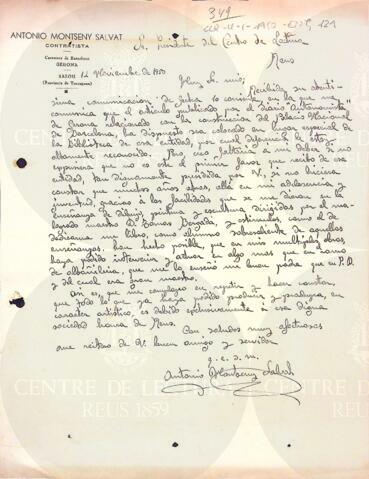 349
ANTONIO MONTSENY SALVAT
CONTRATISTA
Carretera de Barcelona
GERONA
SALOU
(Provincia de Tarragona)
Sr. Presidente del Centro de Lectura
Reus
14 Noviembre de 1950
Muy Sr. mío;
Recibida su atentí-
sima comunicación de fecha 10 corriente en la que me
comunica que el artículo publicado por el diario "Autonomista"
de Gerona relacionado con la construcción del Palacio Nacional
de Barcelona, ha dispuesto sea colocado en lugar especial de
la biblioteca de esa entidad, por cual deferencia le estoy
altamente reconocido. Pero creo faltaría a mi deber si no
expusiera que no es este el primer favor que recibo de esa
entidad, tan dignamente presidida por V., si no hiciera
constar que muchos años atrás, allá en mi adolescencia y
juventud, gracias a las facilidades que se me dieron en la
enseñanza de dibujo, pintura y escultura dirigidas por el ma-
logrado maestro D. Tomás Bergadá, y estímulos como el de
dedicarme un libro, como alumno sobresaliente de aquellas
enseñanzas, han hecho posible, que en mis multiples obras,
haya podido intervenir y actuar en algo mas que en ramo
de albañilería, que me lo enseñó mi buen padre que en P. D.
y del cual era gran maestro.
Así es que me complazco en repetir y hacer constar,
que todo lo que ya haya podido producir y produzca, en
caracter artístico, es debido a esa digna
sociedad honra de Reus.
Con saludos muy afectuosos
que reciba de V. buen amigo y servidor
q. e. s. m.
Antonio Montseny Salvat
CENTRE DE LECTURA
REUS 1859